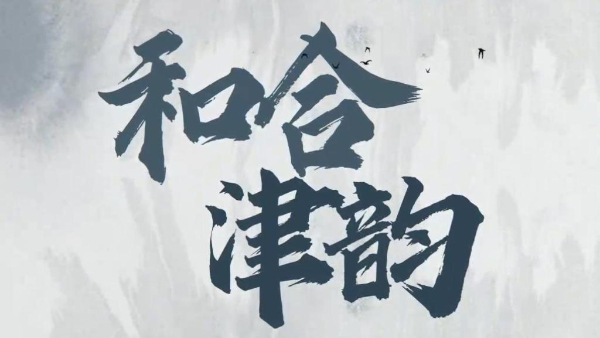 和合
津韵